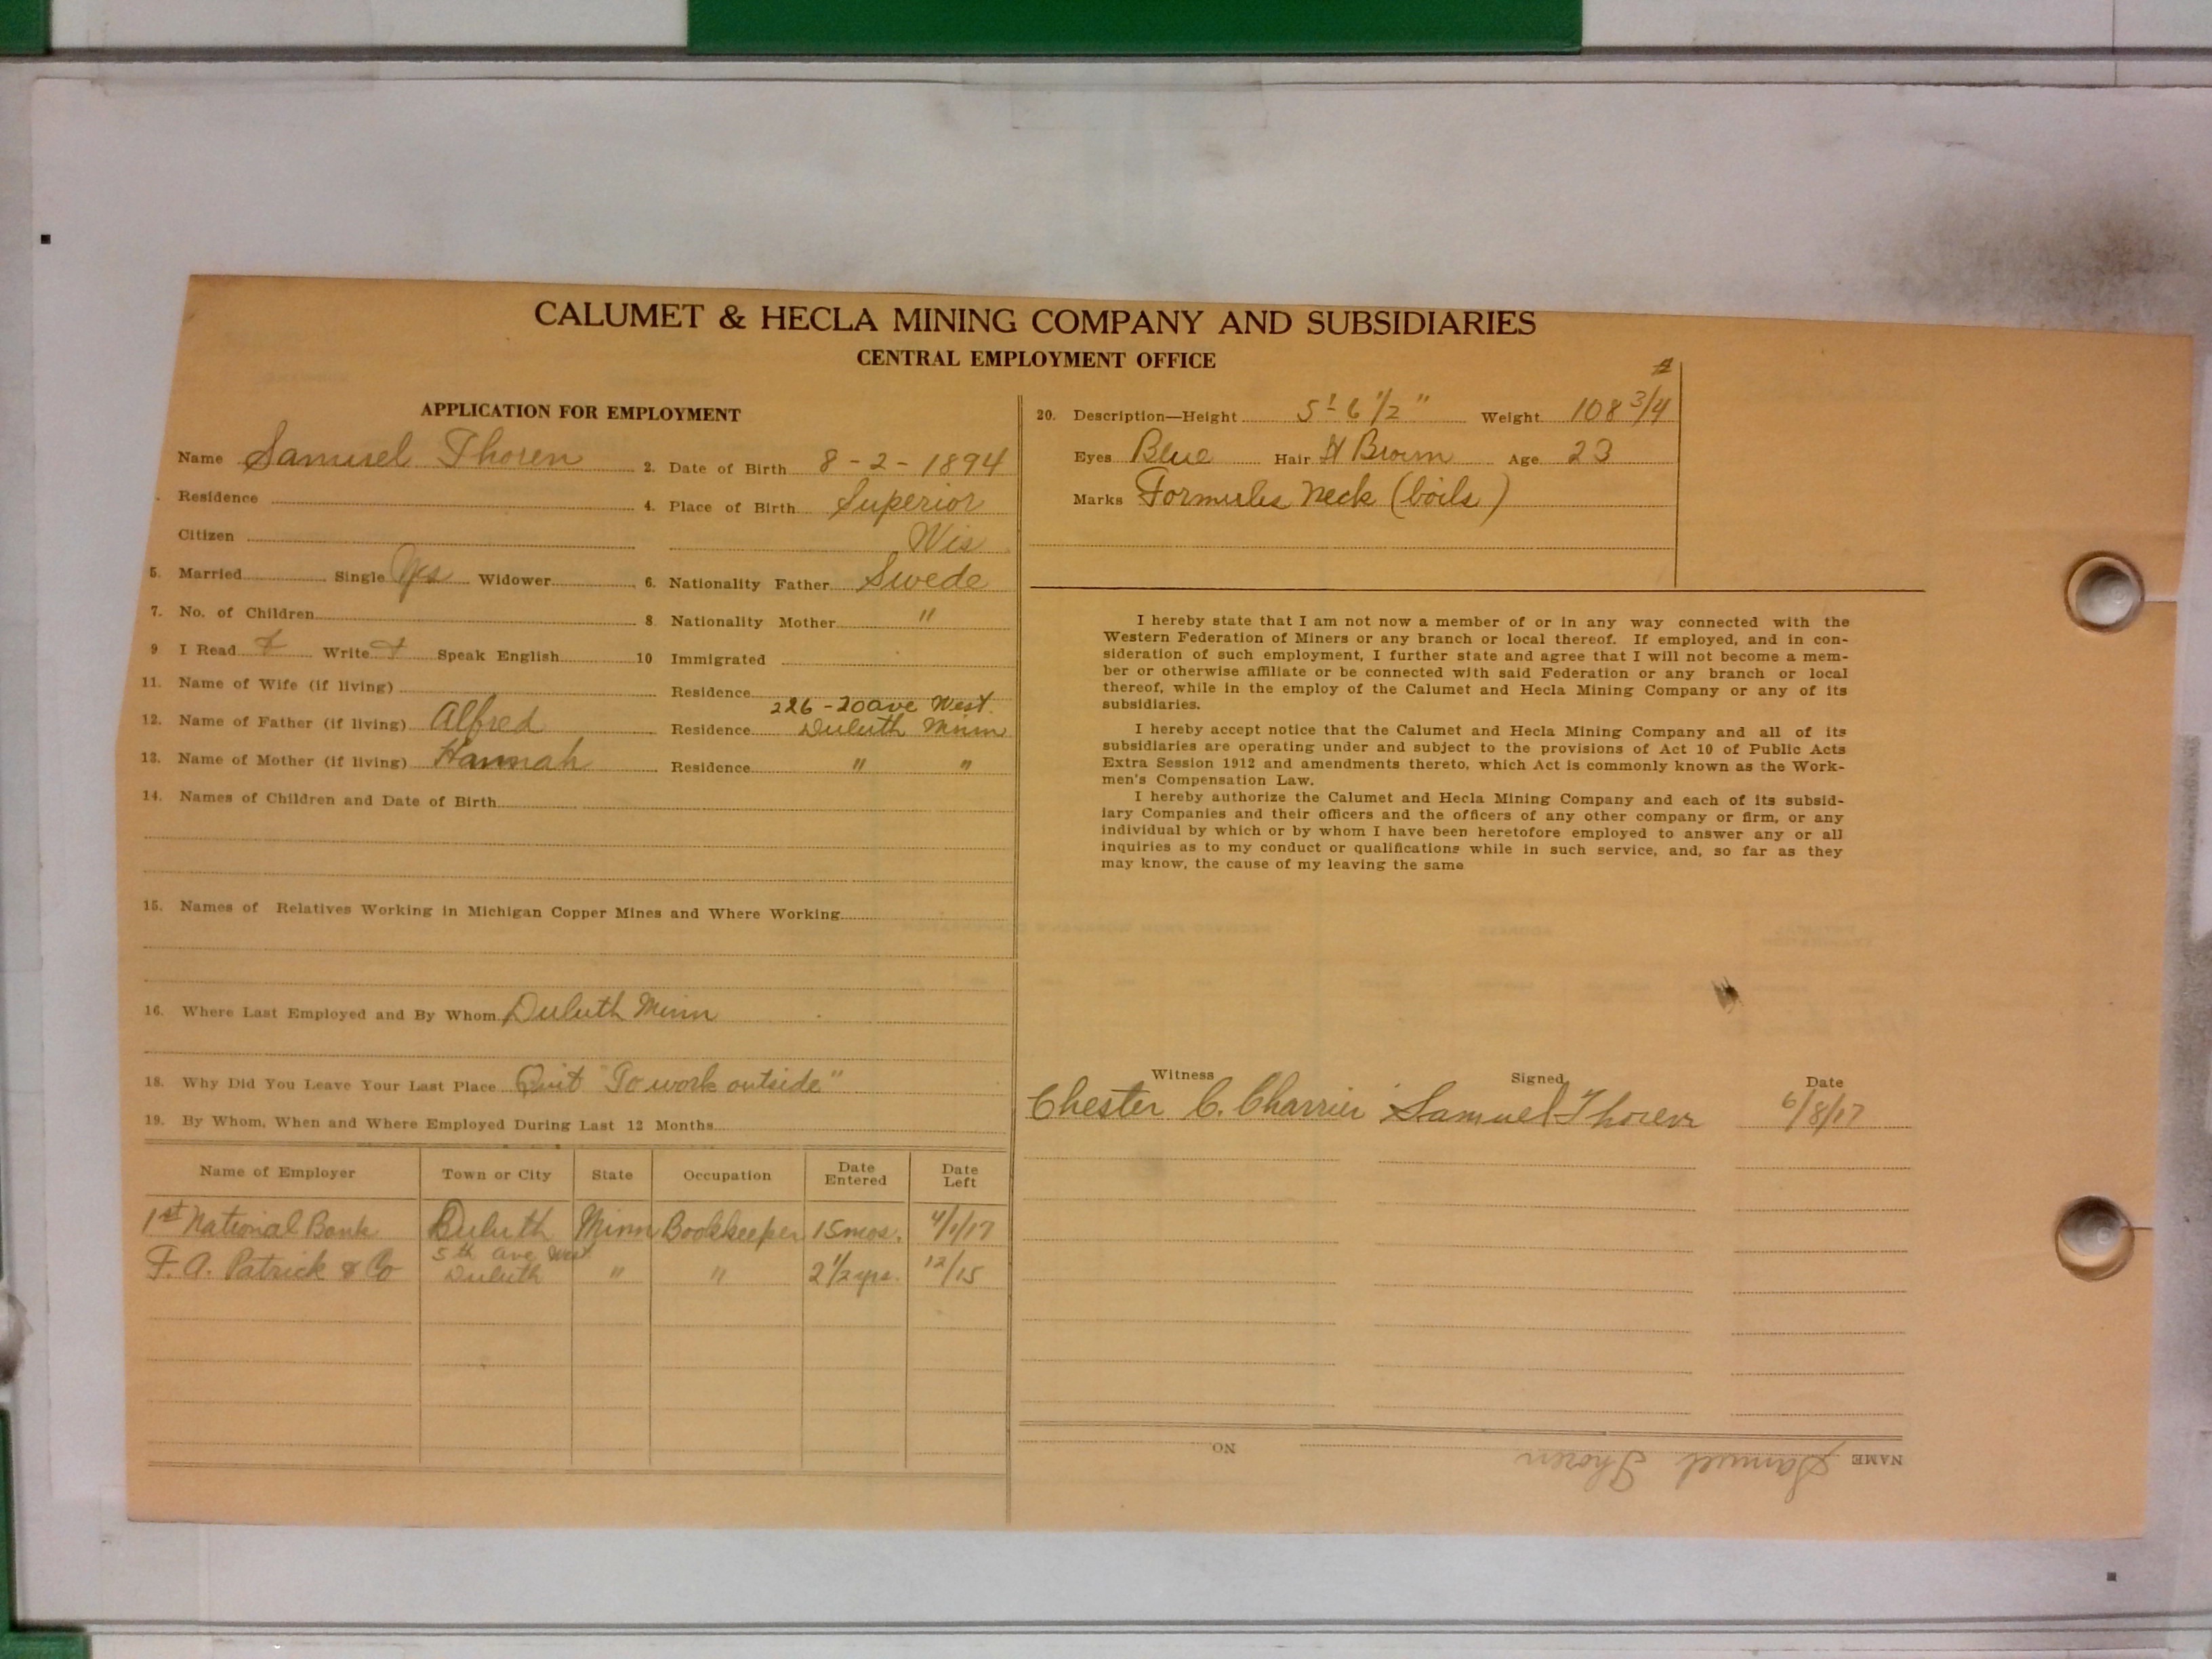 CALUMET & HECLA MINING COMPANY AND SUBSIDIARIES
CENTRAL EMPLOYMENT OFFICE
APPLICATION FOR EMPLOYMENT
Name Samuel Thoren 2. Date of Birth 8-2-1894
Residence 4. Place of Birth Superior
Citizen Wis
5. Married Single Yes Widower 6. Nationality Father Swede
7. No. of Children 8 Nationality Mother "
9 I Read Write Speak English 10 Immigrated
11. Name of Wife (if living) Residence
226-20 ave West.
12. Name of Father (if living) Alfred Residence Duluth Minn
13. Name of Mother (if living) Hannah Residence " "
14. Names of Children and Date of Birth
15. Names of Relatives Working in Michigan Copper Mines and Where Working
16. Where Last Employed and By Whom Duluth Minn
18. Why Did You Leave Your Last Place Quit "To work outside"
19. By Whom, When and Where Employed During Last 12 Months
Name of Employer Town or City State Occupation Date Entered Date Left
1st National Bank Duluth Minn Bookkeeper 15 mos. 4/1/17
5th ave West
F. A. Patrick & Co Duluth " " 2 1/2 yrs. 12/15
#
20. Description—Height 5'-6 1/2" Weight 108 3/4
Eyes Blue Hair Brown Age 23
Marks neck (boils)
I hereby state that I am not now a member of or in any way connected with the
Western Federation of Miners or any branch or local thereof. If employed, and in con-
sideration of such employment, I further state and agree that I will not become a mem-
ber or otherwise affiliate or be connected with said Federation or any branch or local
thereof, while in the employ of the Calumet and Hecla Mining Company or any of its
subsidiaries.
I hereby accept notice that the Calumet and Hecla Mining Company and all of its
subsidiaries are operating under and subject to the provisions of Act 10 of Public Acts
Extra Session 1912 and amendments thereto, which Act is commonly known as the Work-
men's Compensation Law.
I hereby authorize the Calumet and Hecla Mining Company and each of its subsid-
iary Companies and their officers and the officers of any other company or firm, or any
individual by which or by whom I have been heretofore employed to answer any or all
inquiries as to my conduct or qualifications while in such service, and, so far as they
may know, the cause of my leaving the same
Witness Signed Date
Chester C. Charrier Samuel Thoren 6/8/17
NAME Samuel Thoren NO.